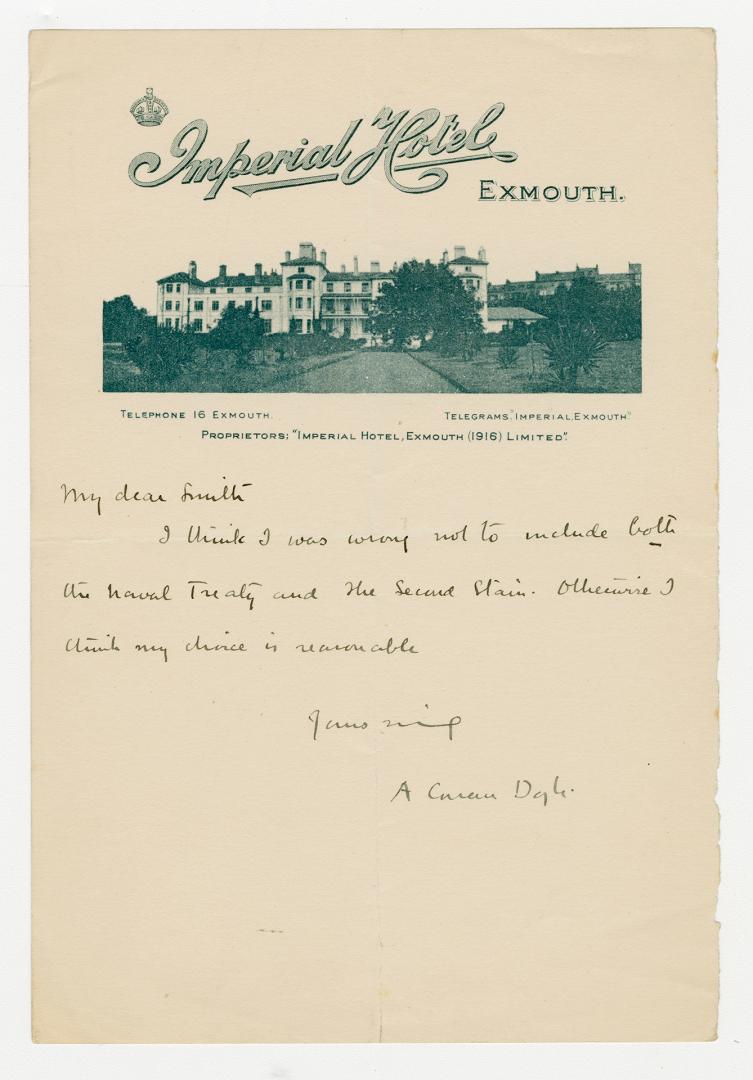 Imperial Hotel
EXMOUTH.
TELEPHONE 16 EXMOUTH.
TELEGRAMS: "IMPERIAL, EXMOUTH"
PROPRIETORS: "IMPERIAL HOTEL, EXMOUTH (1916) LIMITED".
My dear Smith
I think I was wrong not to include both
the Naval Treaty and The Second Stain. Otherwise I
think my choice is reasonable
Yours sincerely
A Conan Doyle.